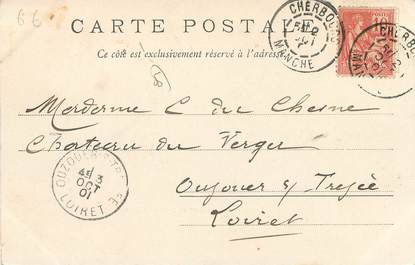 66
CARTE POSTA
Ce côté est exclusivement réservé à l'adresse
CHERBOURG
MANCHE
CHERBO
MAN
10
Madame C du Chesne
Chateau du Verger
Ouzouer s/ Trezée
Loiret
OUZOUER-S-TRE
4E 3
OCT
01
LOIRET